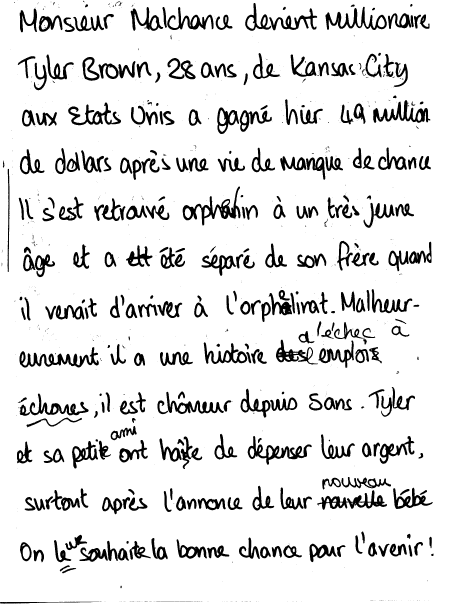 Monsieur Malchance devient Millionaire
Tyler Brown, 28 ans, de Kansas City
aux Etats Unis a gagné hier 49 million
de dollars après une vie de manque de chance
Il s'est retrouvé orphélin à un très jeune
âge et a été séparé de son frère quand
il venait d'arriver à l'orphélinat. Malheur-
eunement il a une histoire d'échec à l'emploi
échoues, il est chômeur depuis 5ans. Tyler
et sa petite ami ont haîte de dépenser leur argent,
surtout après l'annonce de leur nouveau bébé
On leur souhaite la bonne chance pour l'avenir!